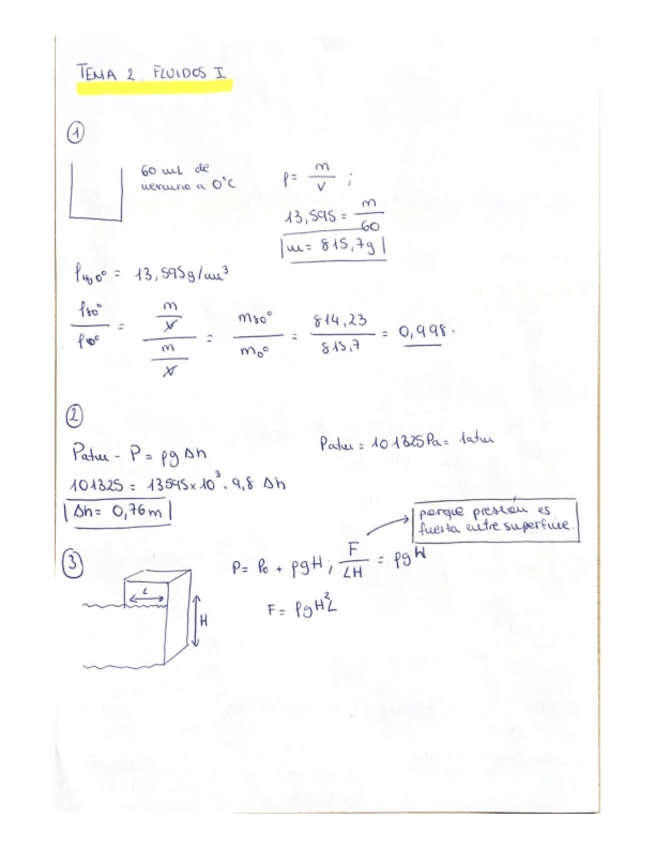 TEMA 2. FLUIDOS I
①
60 ml de
mercurio a 0°C
ρ = m/V ;
13,595 = m/60
m = 815,7g
ρHg0° = 13,595g/cm³
ρ80°/ρ0° = (m/V)/(m/V) = m80°/m0° = 814,23/815,7 = 0,998.
②
Patm - P = ρg Δh
Patm = 101325Pa = 1atm
101325 = 13595x10³ · 9,8 Δh
Δh = 0,76m
porque presión es
fuerza entre superficie.
③
P = P₀ + ρgH ; F/LH = ρgH
L
H
F = ρgH²L